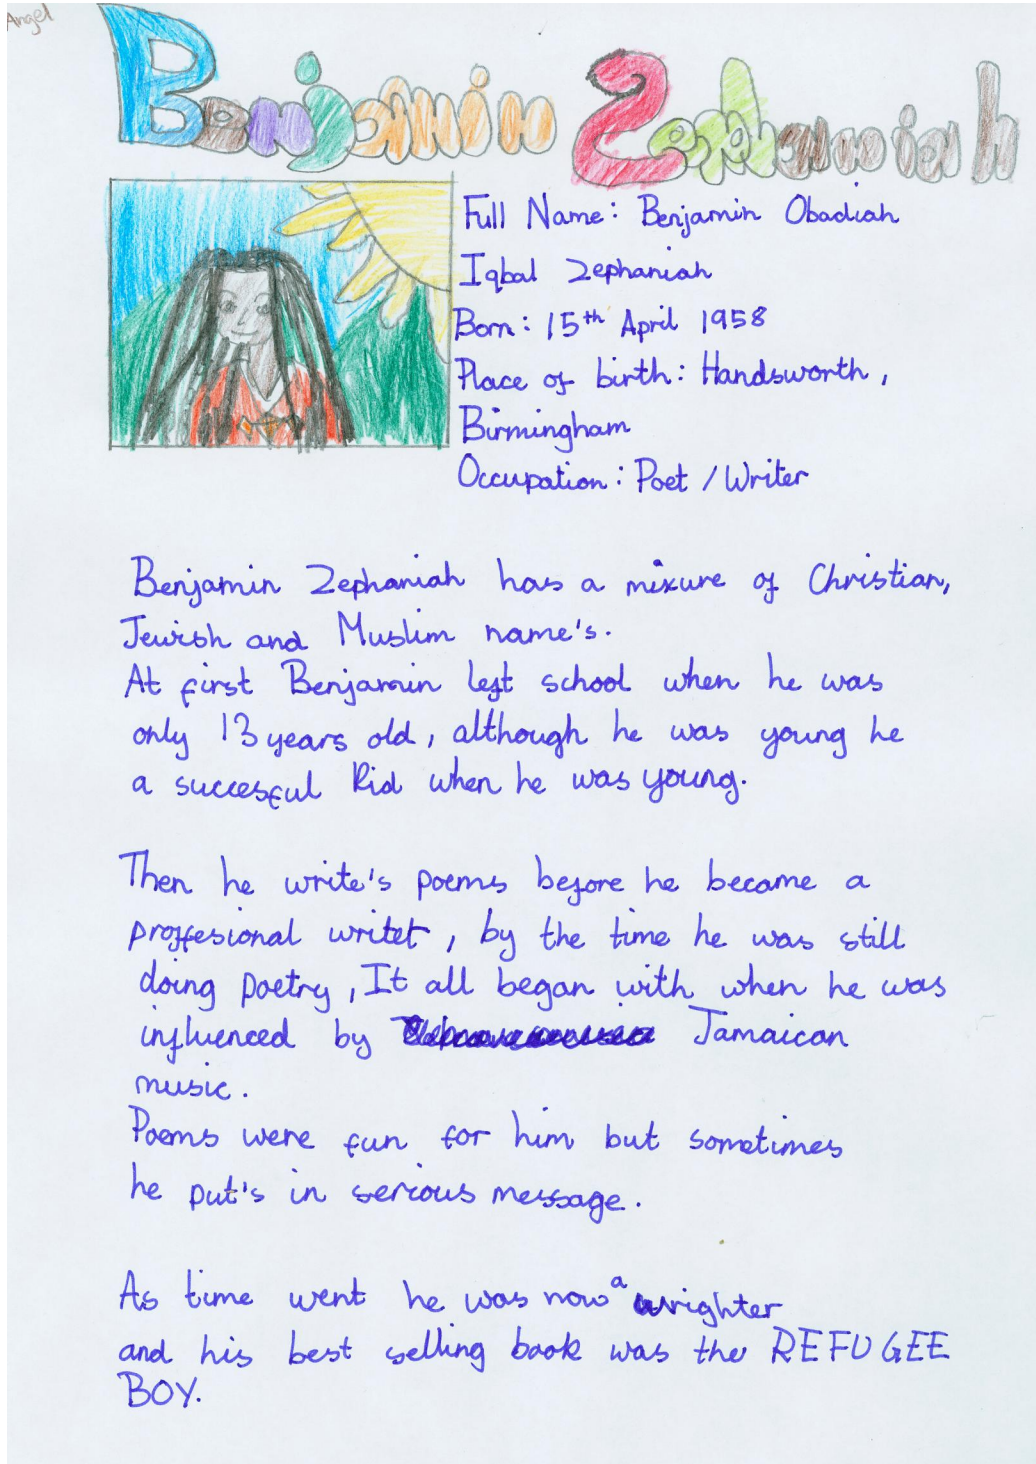 Angel
Benjamin Zephaniah
Full Name: Benjamin Obadiah
Iqbal Zephaniah
Born: 15th April 1958
Place of birth: Handsworth,
Birmingham
Occupation: Poet / Writer
Benjamin Zephaniah has a mixure of Christian,
Jewish and Muslim name's.
At first Benjamin left school when he was
only 13 years old, although he was young he
a succesful kid when he was young.
Then he write's poems before he became a
proffesional writet, by the time he was still
doing poetry, It all began with when he was
influenced by Jamaican
music.
Poems were fun for him but sometimes
he put's in serious message.
As time went he was now a wrighter
and his best selling book was the REFUGEE
BOY.